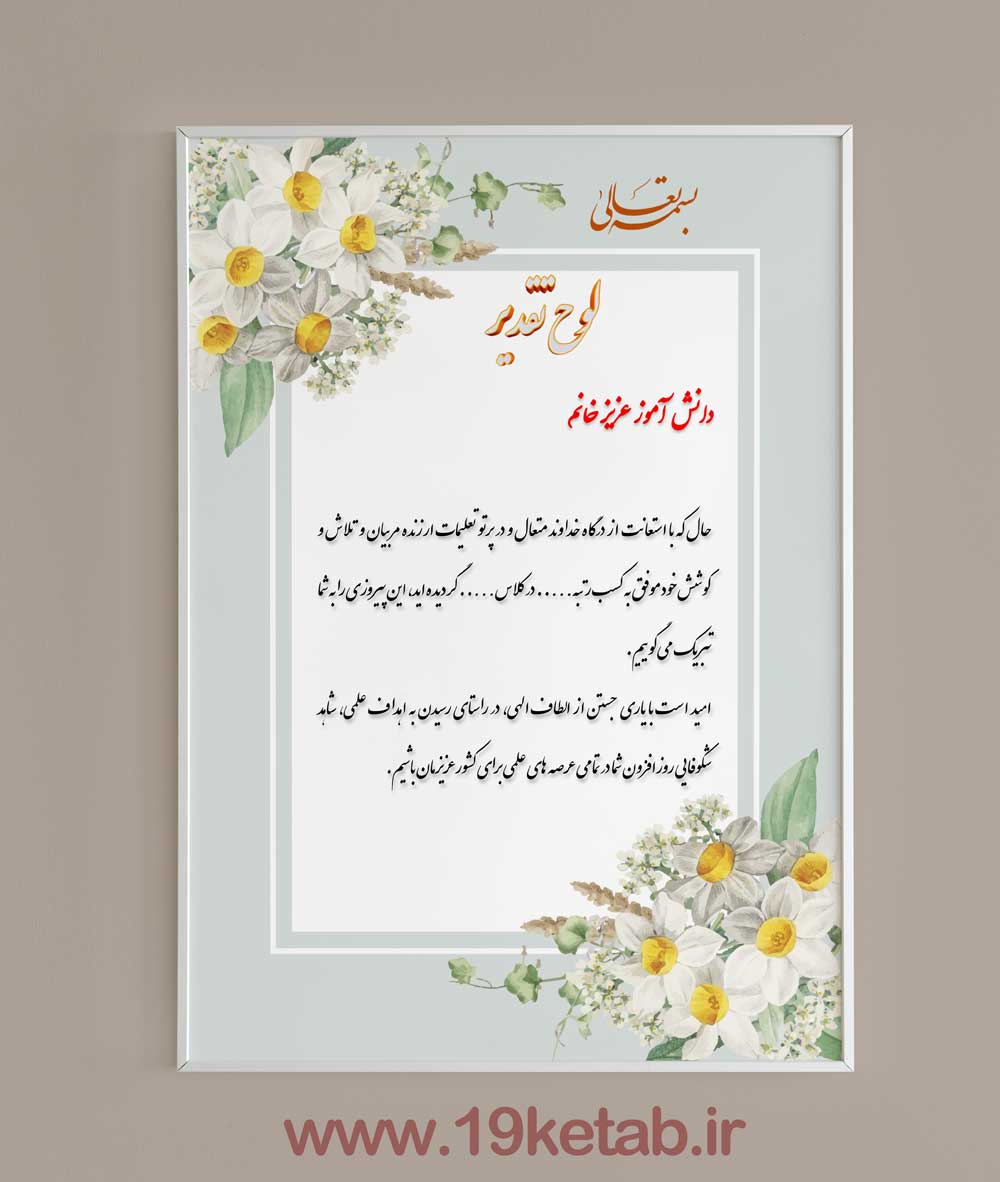 بسمه تعالی
لوح تقدیر
دانش آموز عزیز خانم
حال که با استعانت از درگاه خداوند متعال و در پرتو تعلیمات ارزنده مربیان و تلاش و
کوشش خود موفق به کسب رتبه..... در کلاس..... گردیده اید، این پیروزی را به شما
تبریک می گوییم.
امید است با یاری جستن از الطاف الهی، در راستای رسیدن به اهداف علمی، شاهد
شکوفایی روز افزون شما در تمامی عرصه های علمی برای کشور عزیزمان باشیم.
www.19ketab.ir